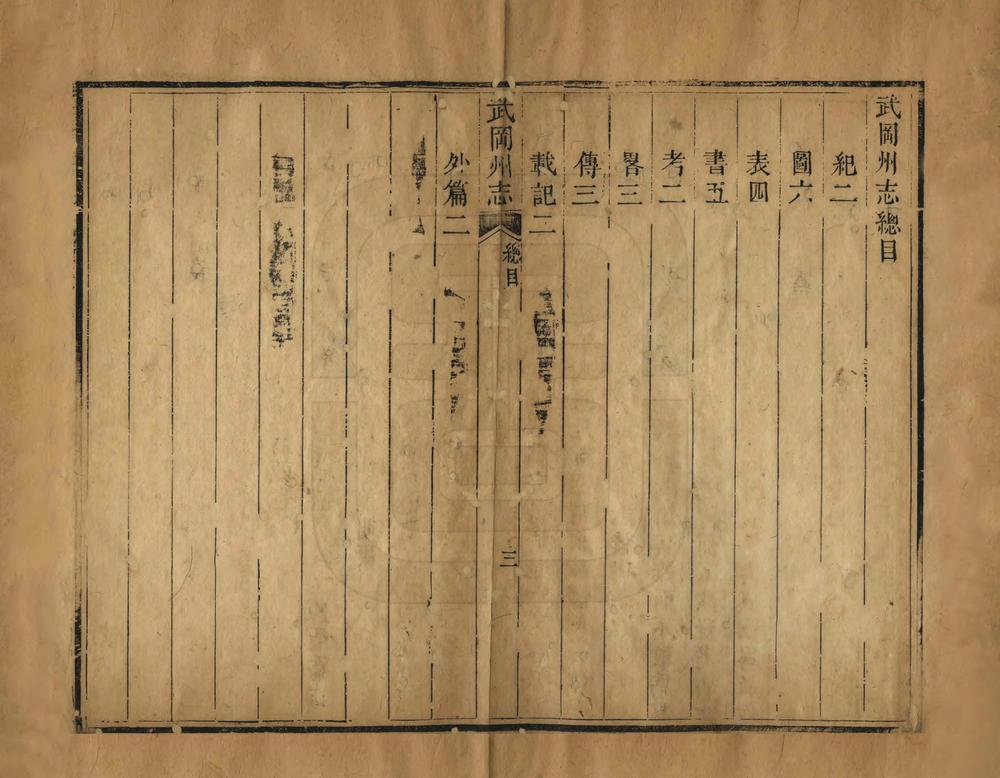 武岡州志總目
紀二
圖六
表四
書五
考二
畧三
傳三
載記二
武岡州志
總目
三
外篇二